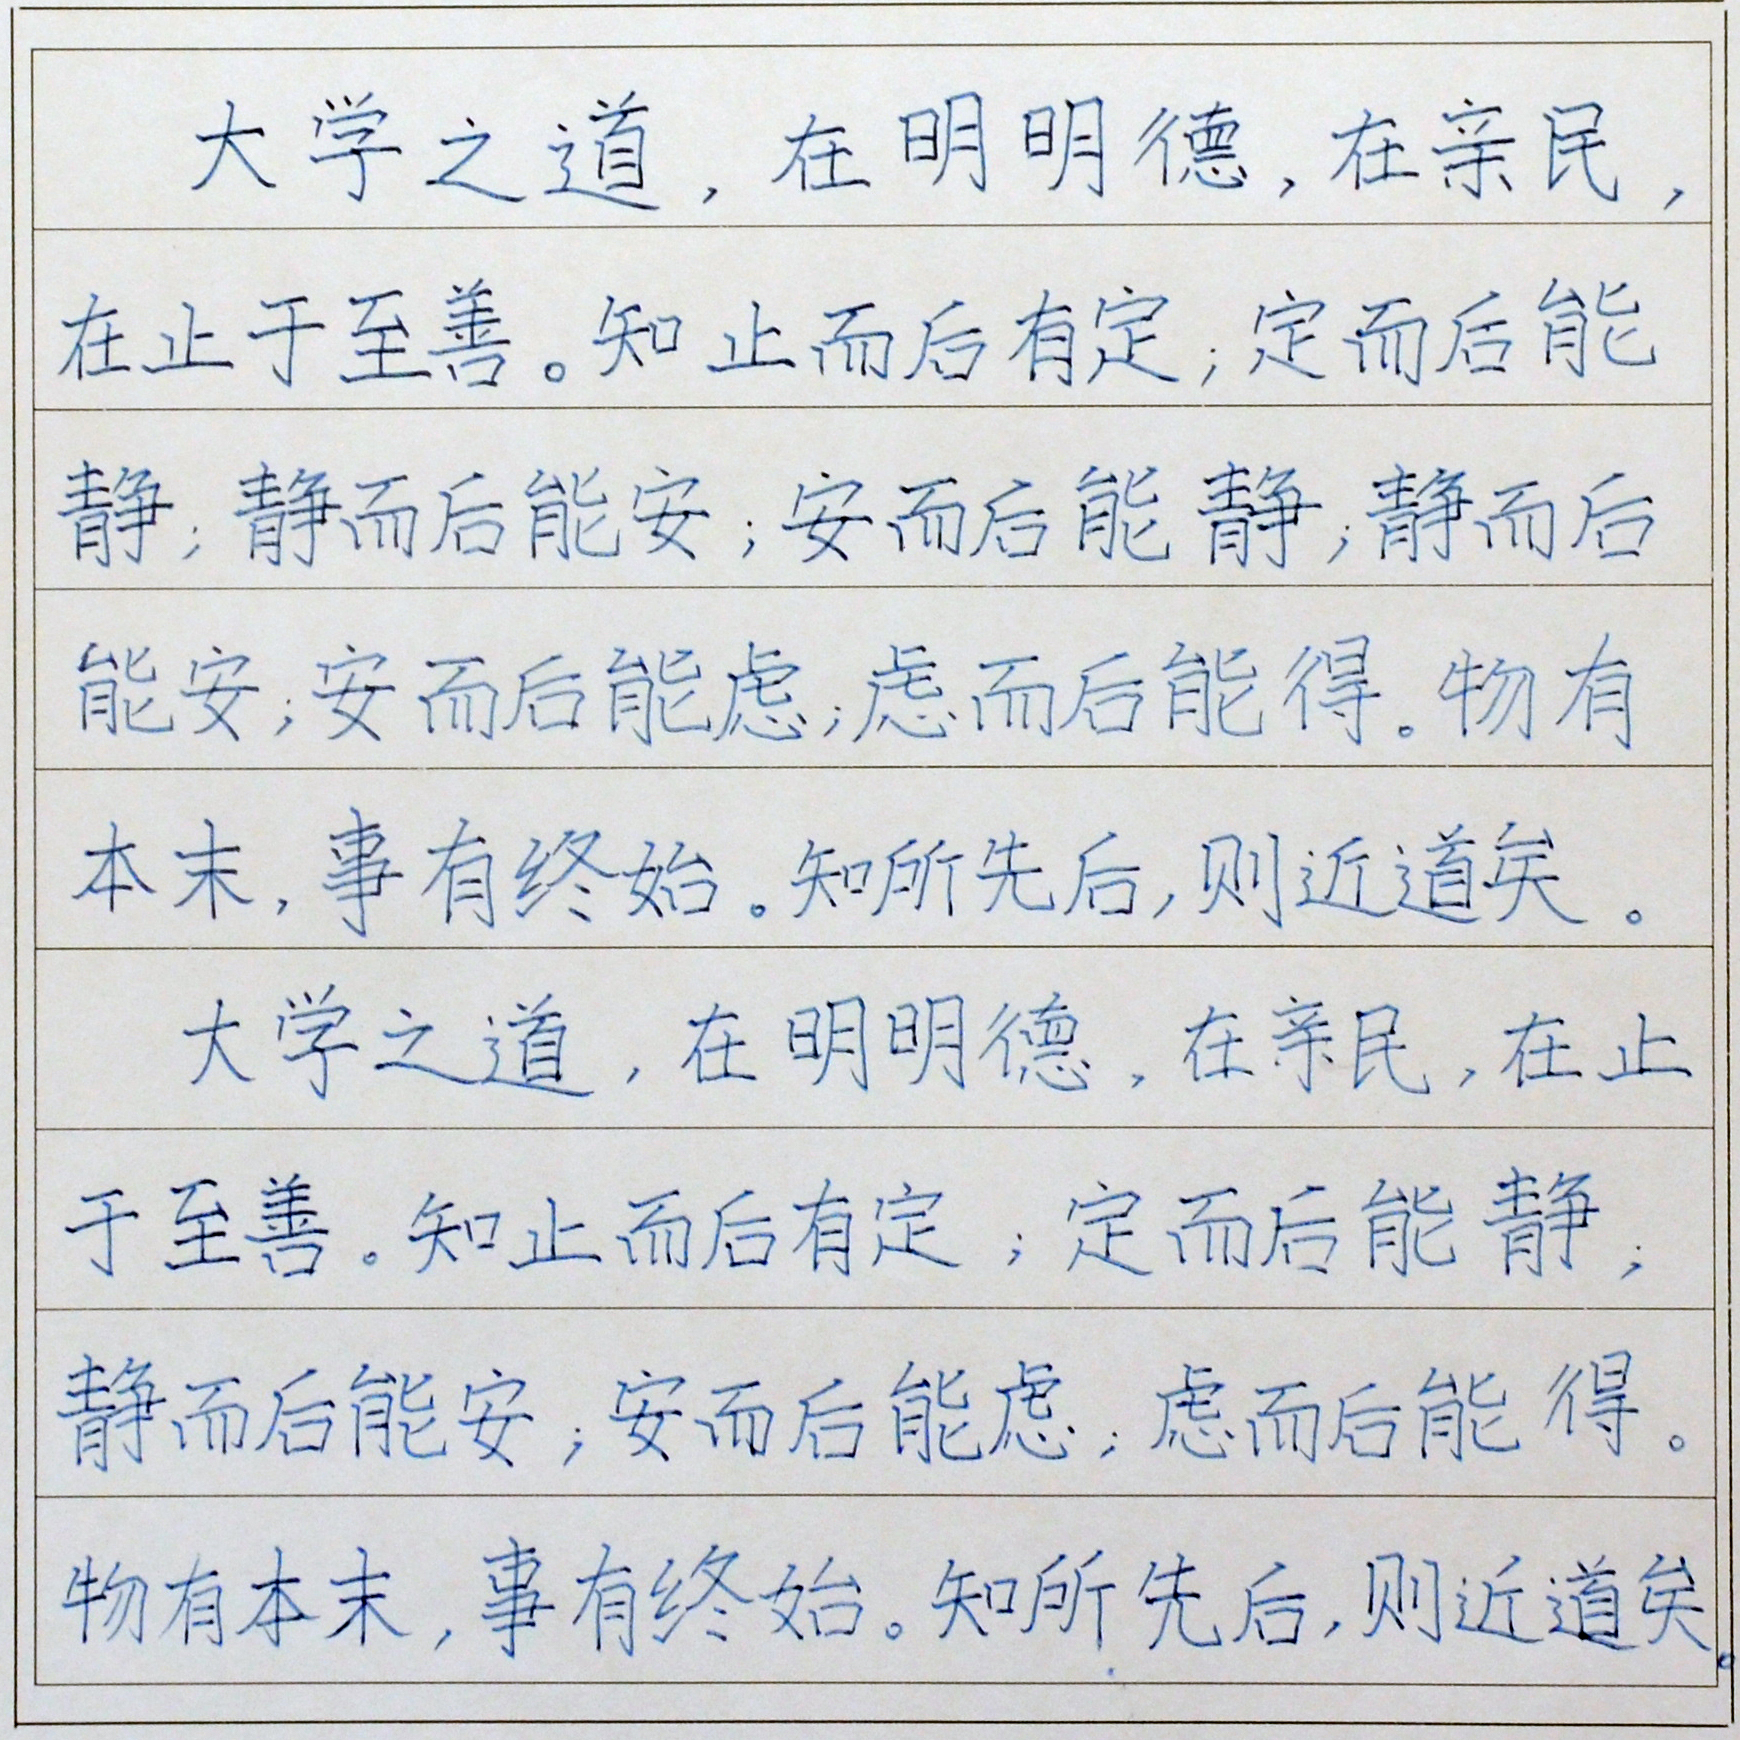 大学之道，在明明德，在亲民，
在止于至善。知止而后有定；定而后能
静；静而后能安；安而后能静；静而后
能安；安而后能虑；虑而后能得。物有
本末，事有终始。知所先后，则近道矣。
大学之道，在明明德，在亲民，在止
于至善。知止而后有定；定而后能静；
静而后能安；安而后能虑；虑而后能得。
物有本末，事有终始。知所先后，则近道矣。